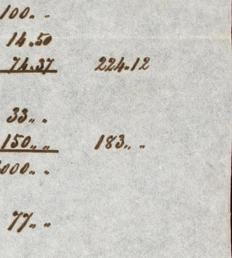 100. -
14.50
74.37 224.12
33.. .
150.. .. 183.. ..
000.. .
77.. ..